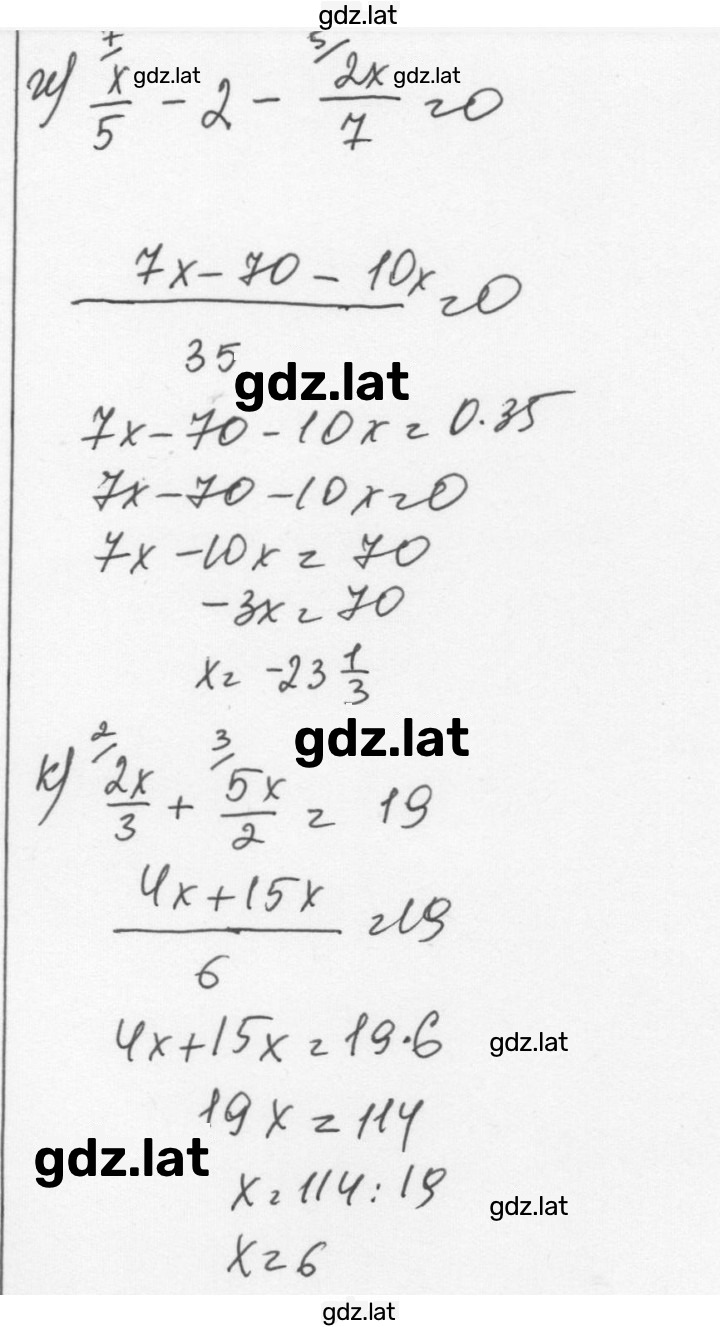 gdz.lat
и) 7/ x/5 - 2 - 5/ 2x/7 = 0
gdz.lat gdz.lat
(7x - 70 - 10x)/35 = 0
gdz.lat
7x - 70 - 10x = 0·35
7x - 70 - 10x = 0
7x - 10x = 70
-3x = 70
x = -23 1/3
gdz.lat
к) 2/ 2x/3 + 3/ 5x/2 = 19
(4x + 15x)/6 = 19
4x + 15x = 19·6
gdz.lat
19x = 114
gdz.lat
x = 114 : 19
gdz.lat
x = 6
gdz.lat